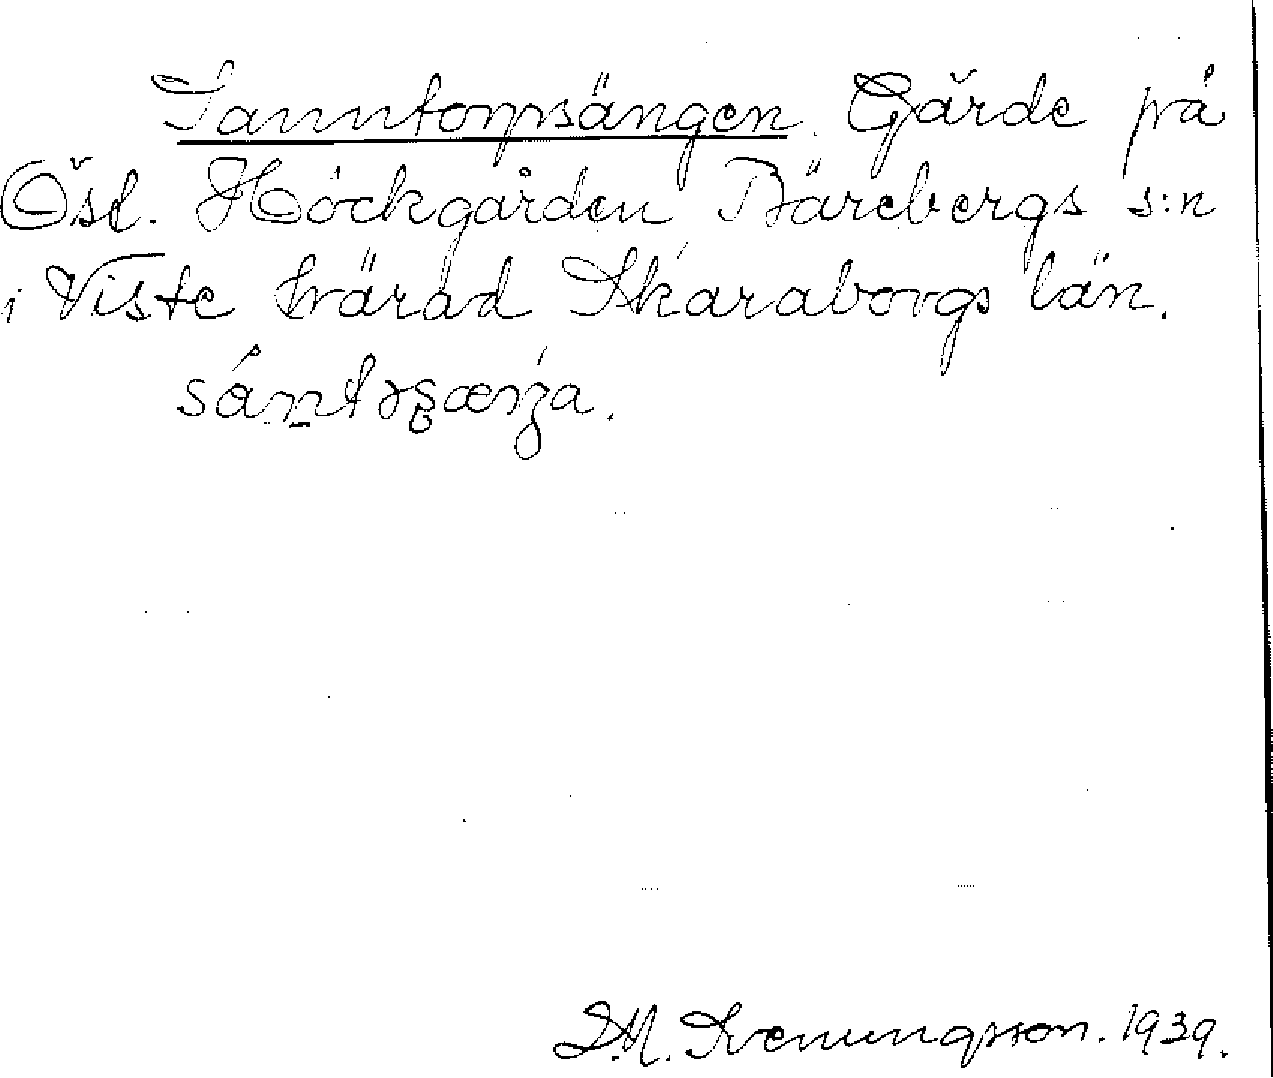 Sanntorpsängen. Gärde på
Öst. Höckgården Bärebergs s:n
i Viste härad Skaraborgs län.
D.M. Svenungsson. 1939.